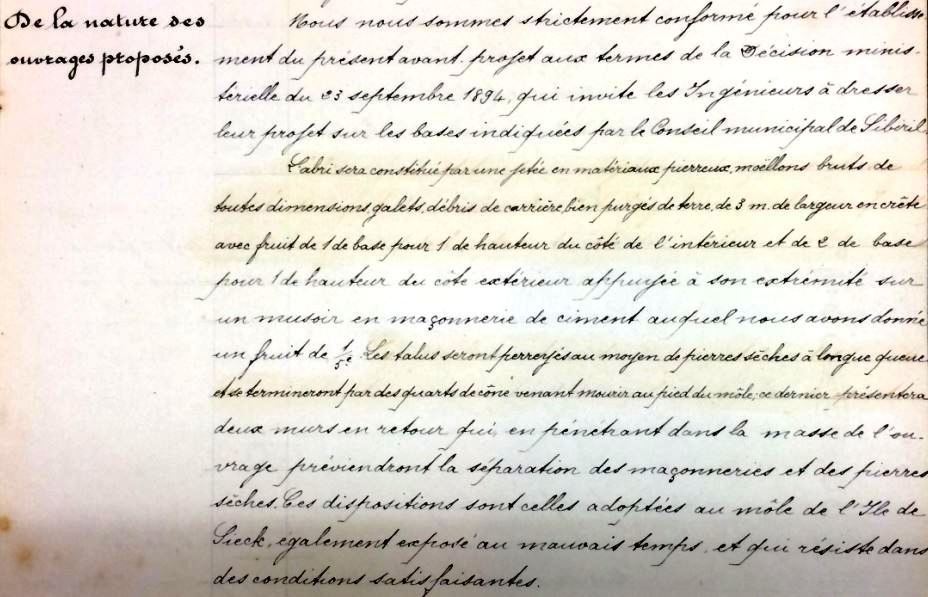 De la nature des
ouvrages proposés.
Nous nous sommes strictement conformé pour l'établisse-
ment du présent avant-projet aux termes de la Décision minis-
térielle du 23 septembre 1894, qui invite les Ingénieurs à dresser
leur projet sur les bases indiquées par le Conseil municipal de Sibéril.
L'abri sera constitué par une jetée en matériaux pierreux, moëllons bruts de
toutes dimensions, galets, débris de carrière, bien purgés de terre, de 3 m. de largeur en crête
avec fruit de 1 de base pour 1 de hauteur du côté de l'intérieur et de 2 de base
pour 1 de hauteur du côté extérieur appuyée à son extrémité sur
un musoir en maçonnerie de ciment auquel nous avons donné
un fruit de 1/5e. Les talus seront perreyés au moyen de pierres sèches à longue queue
et se termineront par des quarts de cône venant mourir au pied du môle; ce dernier présentera
deux murs en retour qui, en pénétrant dans la masse de l'ou-
vrage préviendront la séparation des maçonneries et des pierres
sèches. Ces dispositions sont celles adoptées au môle de l'Ile de
Sieck, également exposé au mauvais temps, et qui résiste dans
des conditions satisfaisantes.